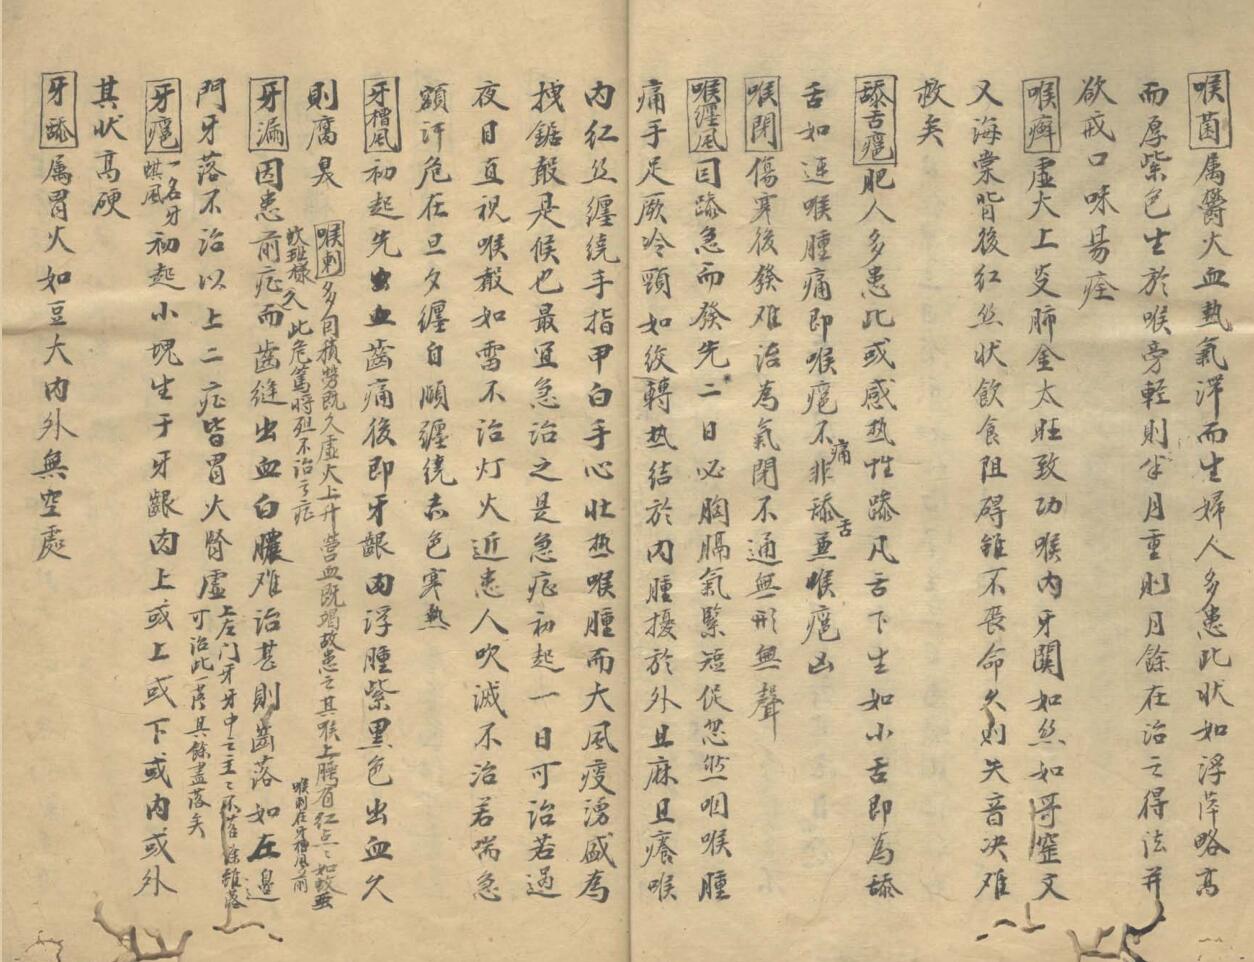 喉菌属鬱火血熱氣滞而生婦人多患此状如浮萍略高
而厚紫色生於喉旁軽則半月重則月餘在治之得法并
欲戒口味易痊
喉癬虚火上炎肺金太旺致功喉内牙関如絲如哥窑文
又海棠背後紅絲状飲食阻碍雖不喪命久则失音决难
救矣
舔舌疱肥人多患此或感热性躁凡舌下生如小舌即為舔
舌如連喉腫痛即喉疱不痛非舔舌並喉疱凶
喉閉傷寒後發难治為氣閉不通無形無聲
喉纏風因躁急而發先二日必胸膈氣緊短促忽然咽喉腫
痛手足厥冷頸如绞轉热结於内腫擾於外且麻且癢喉
内红丝纏绕手指甲白手心壮热喉腫而大风痰湧盛為
拽鋸聲是候也最宜急治之是急症初起一日可治若過
夜目直视喉聲如雷不治灯火近患人吹滅不治若喘急
额汗危在旦夕纏自顺纏绕赤色寒热
牙槽風初起先出血齒痛後即牙龈内浮腫紫黑色出血久
則腐臭
喉刺多因積勞既久虚火上升營血既竭故患之其喉上腭有红点〻如蚊
蚊班樣久此危篤時殂不治之症
喉刺在牙槽风前
牙漏因患前症而齒缝出血白膿难治甚則齒落如在邊
門牙落不治以上二症皆胃火肾虚
上左门牙牙中之主〻不落餘雖落
可治此一落其餘盡落矣
牙疱一名牙蜞風初起小塊生于牙龈肉上或上或下或内或外
其状高硬
牙舔属胃火如豆大内外無空處